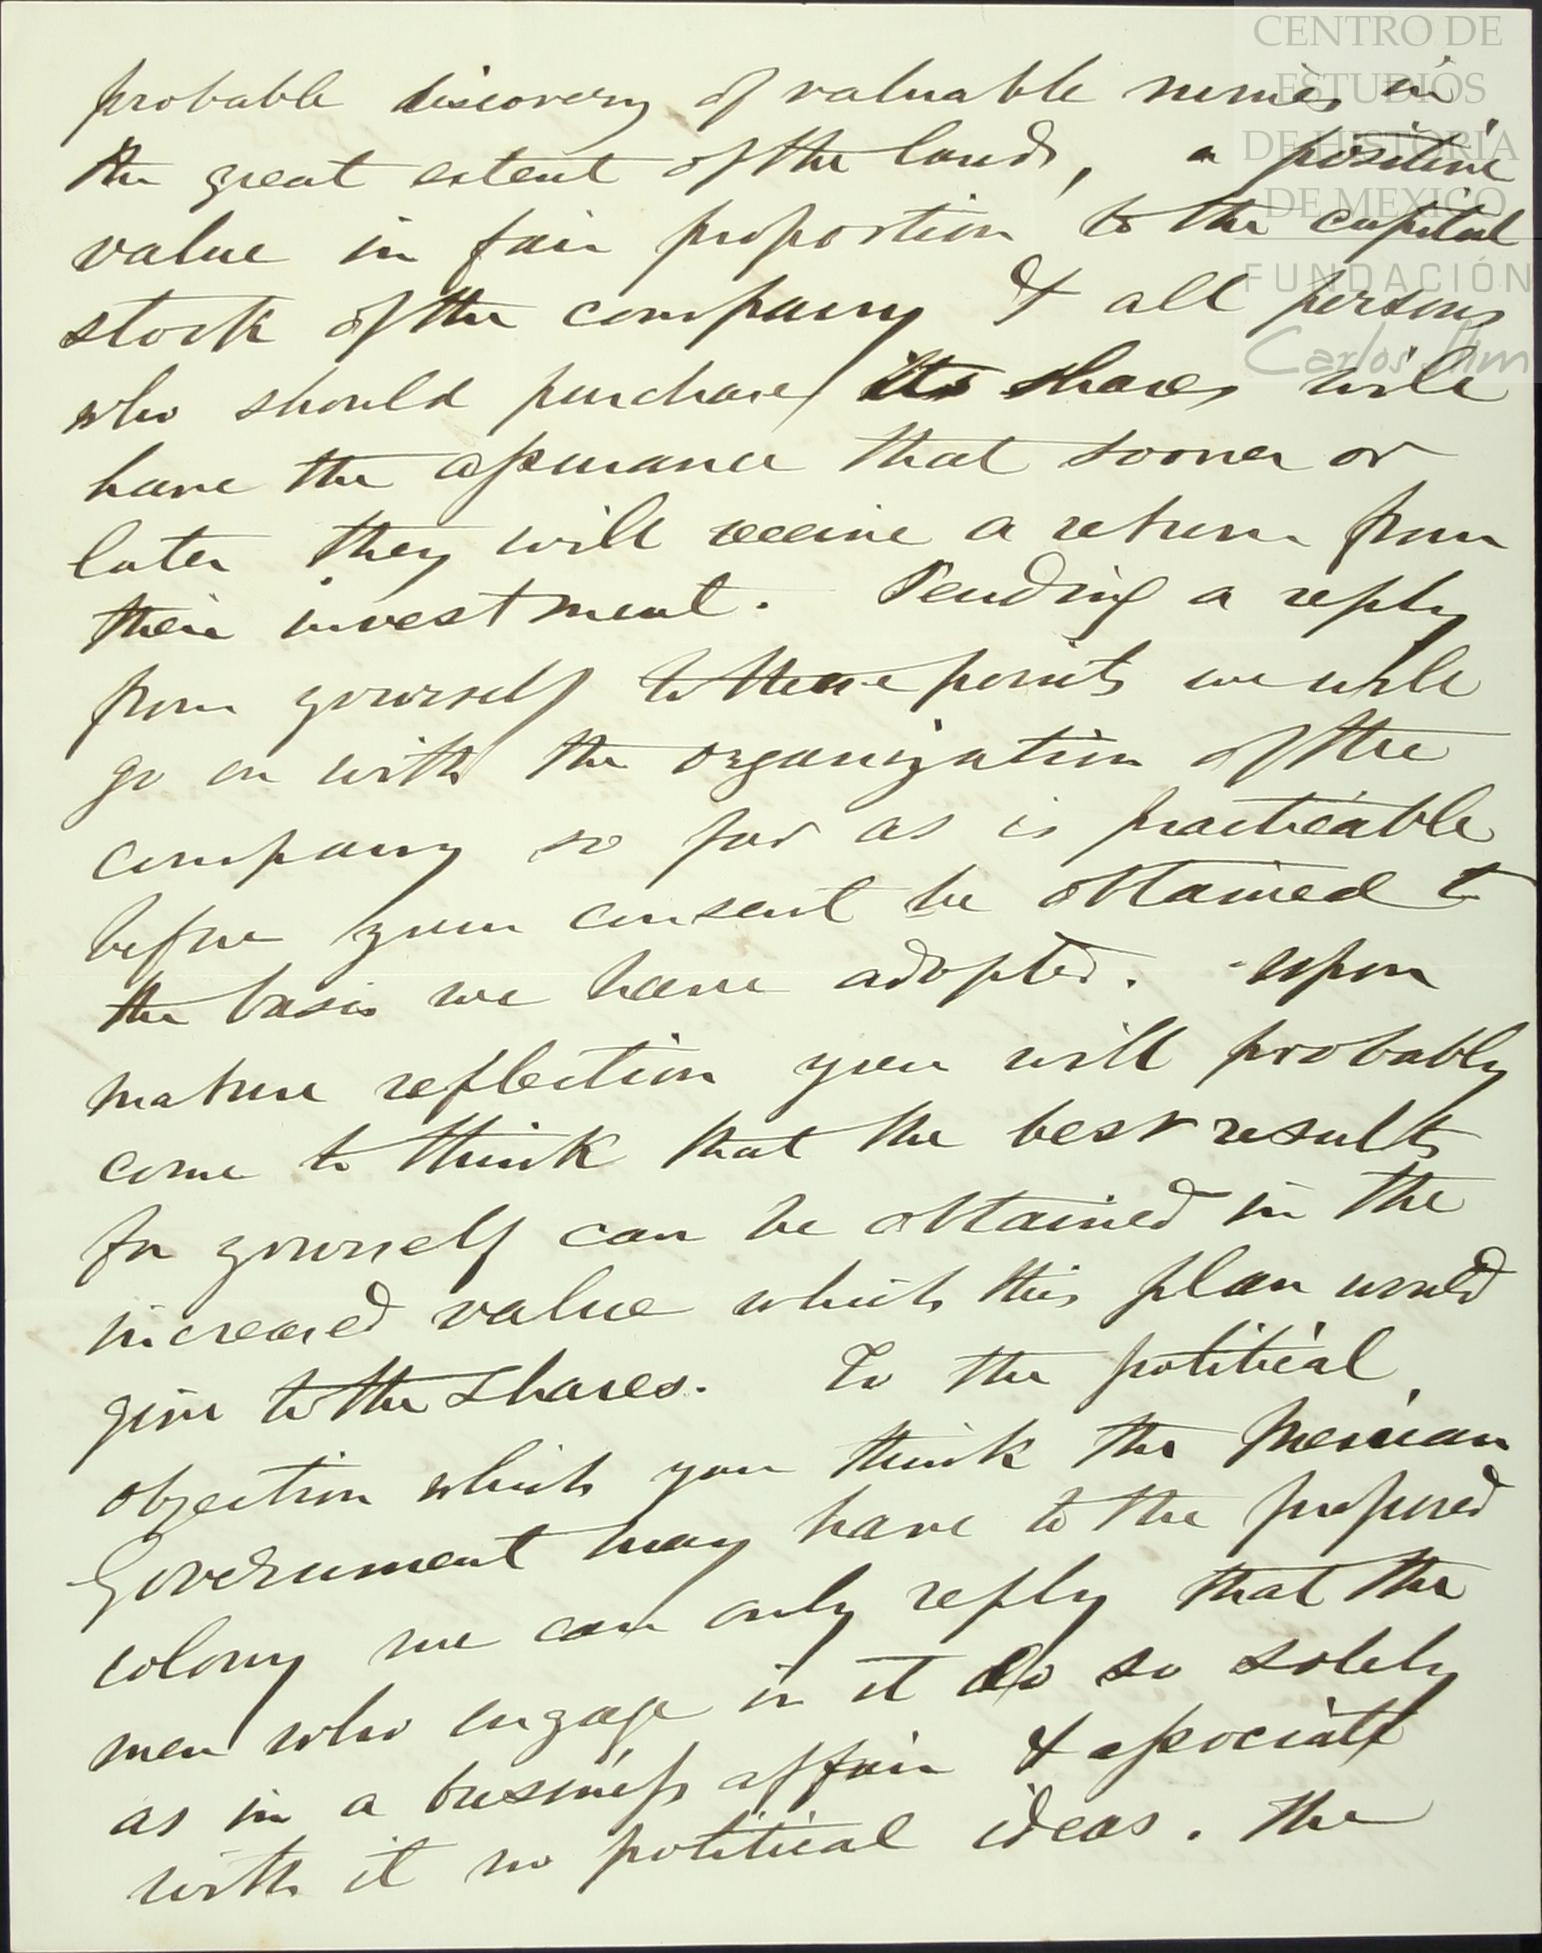 CENTRO DE
ESTUDIOS
DE HISTORIA
DE MEXICO
FUNDACIÓN
Carlos Slim
probable discovery of valuable mines in
the great extent of the lands, a positive
value in fair proportion to the capital
stock of the company & all persons
who should purchase its shares will
have the assurance that sooner or
later they will receive a return from
their investment. Pending a reply
from yourself to these points we will
go on with the organization of the
company so far as is practicable
before your consent be obtained to
the basis we have adopted. upon
mature reflection you will probably
come to think that the best results
for yourself can be obtained in the
increased value which this plan would
give to the shares. To the political
objection which you think the Mexican
Government may have to the proposed
colony we can only reply that the
men who engage in it do so solely
as in a business affair & associate
with it no political ideas. The